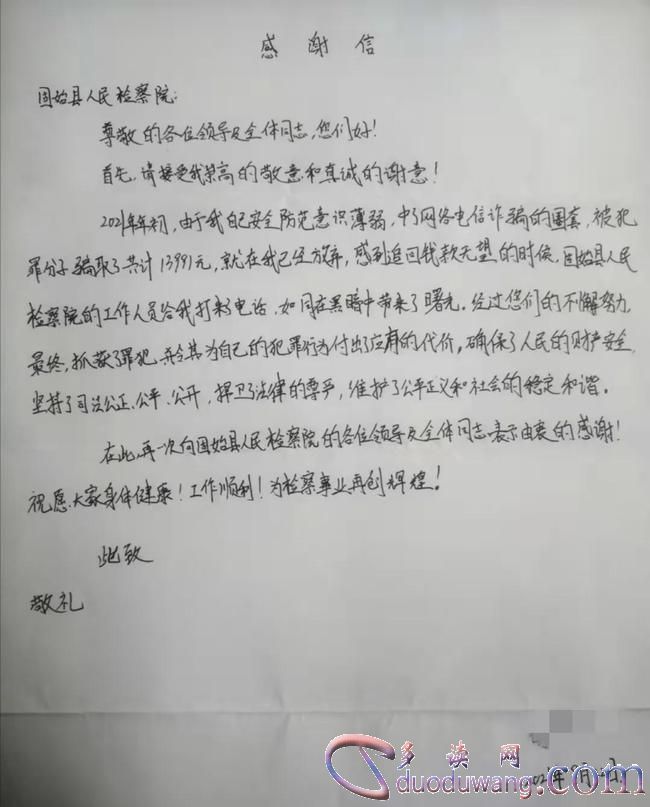 感谢信
固始县人民检察院:
尊敬的各位领导及全体同志,您们好!
首先,请接受我崇高的敬意和真诚的谢意!
2021年年初,由于我自己安全防范意识薄弱,中了网络电信诈骗的圈套,被犯
罪分子骗取了共计13991元,就在我已经放弃,感到追回钱款无望的时候,固始县人民
检察院的工作人员给我打来了电话,如同在黑暗中带来了曙光。经过您们的不懈努力,
最终,抓获了罪犯,并令其为自己的犯罪行为付出了应有的代价。确保了人民的财产安全,
坚持了司法公正、公平、公开,捍卫了法律的尊严,维护了公平正义和社会的稳定和谐。
在此,再一次向固始县人民检察院的各位领导及全体同志表示由衷的感谢!
祝愿大家身体健康!工作顺利!为检察事业再创辉煌!
此致
敬礼
多读网
duoduwang.com
2021年9月